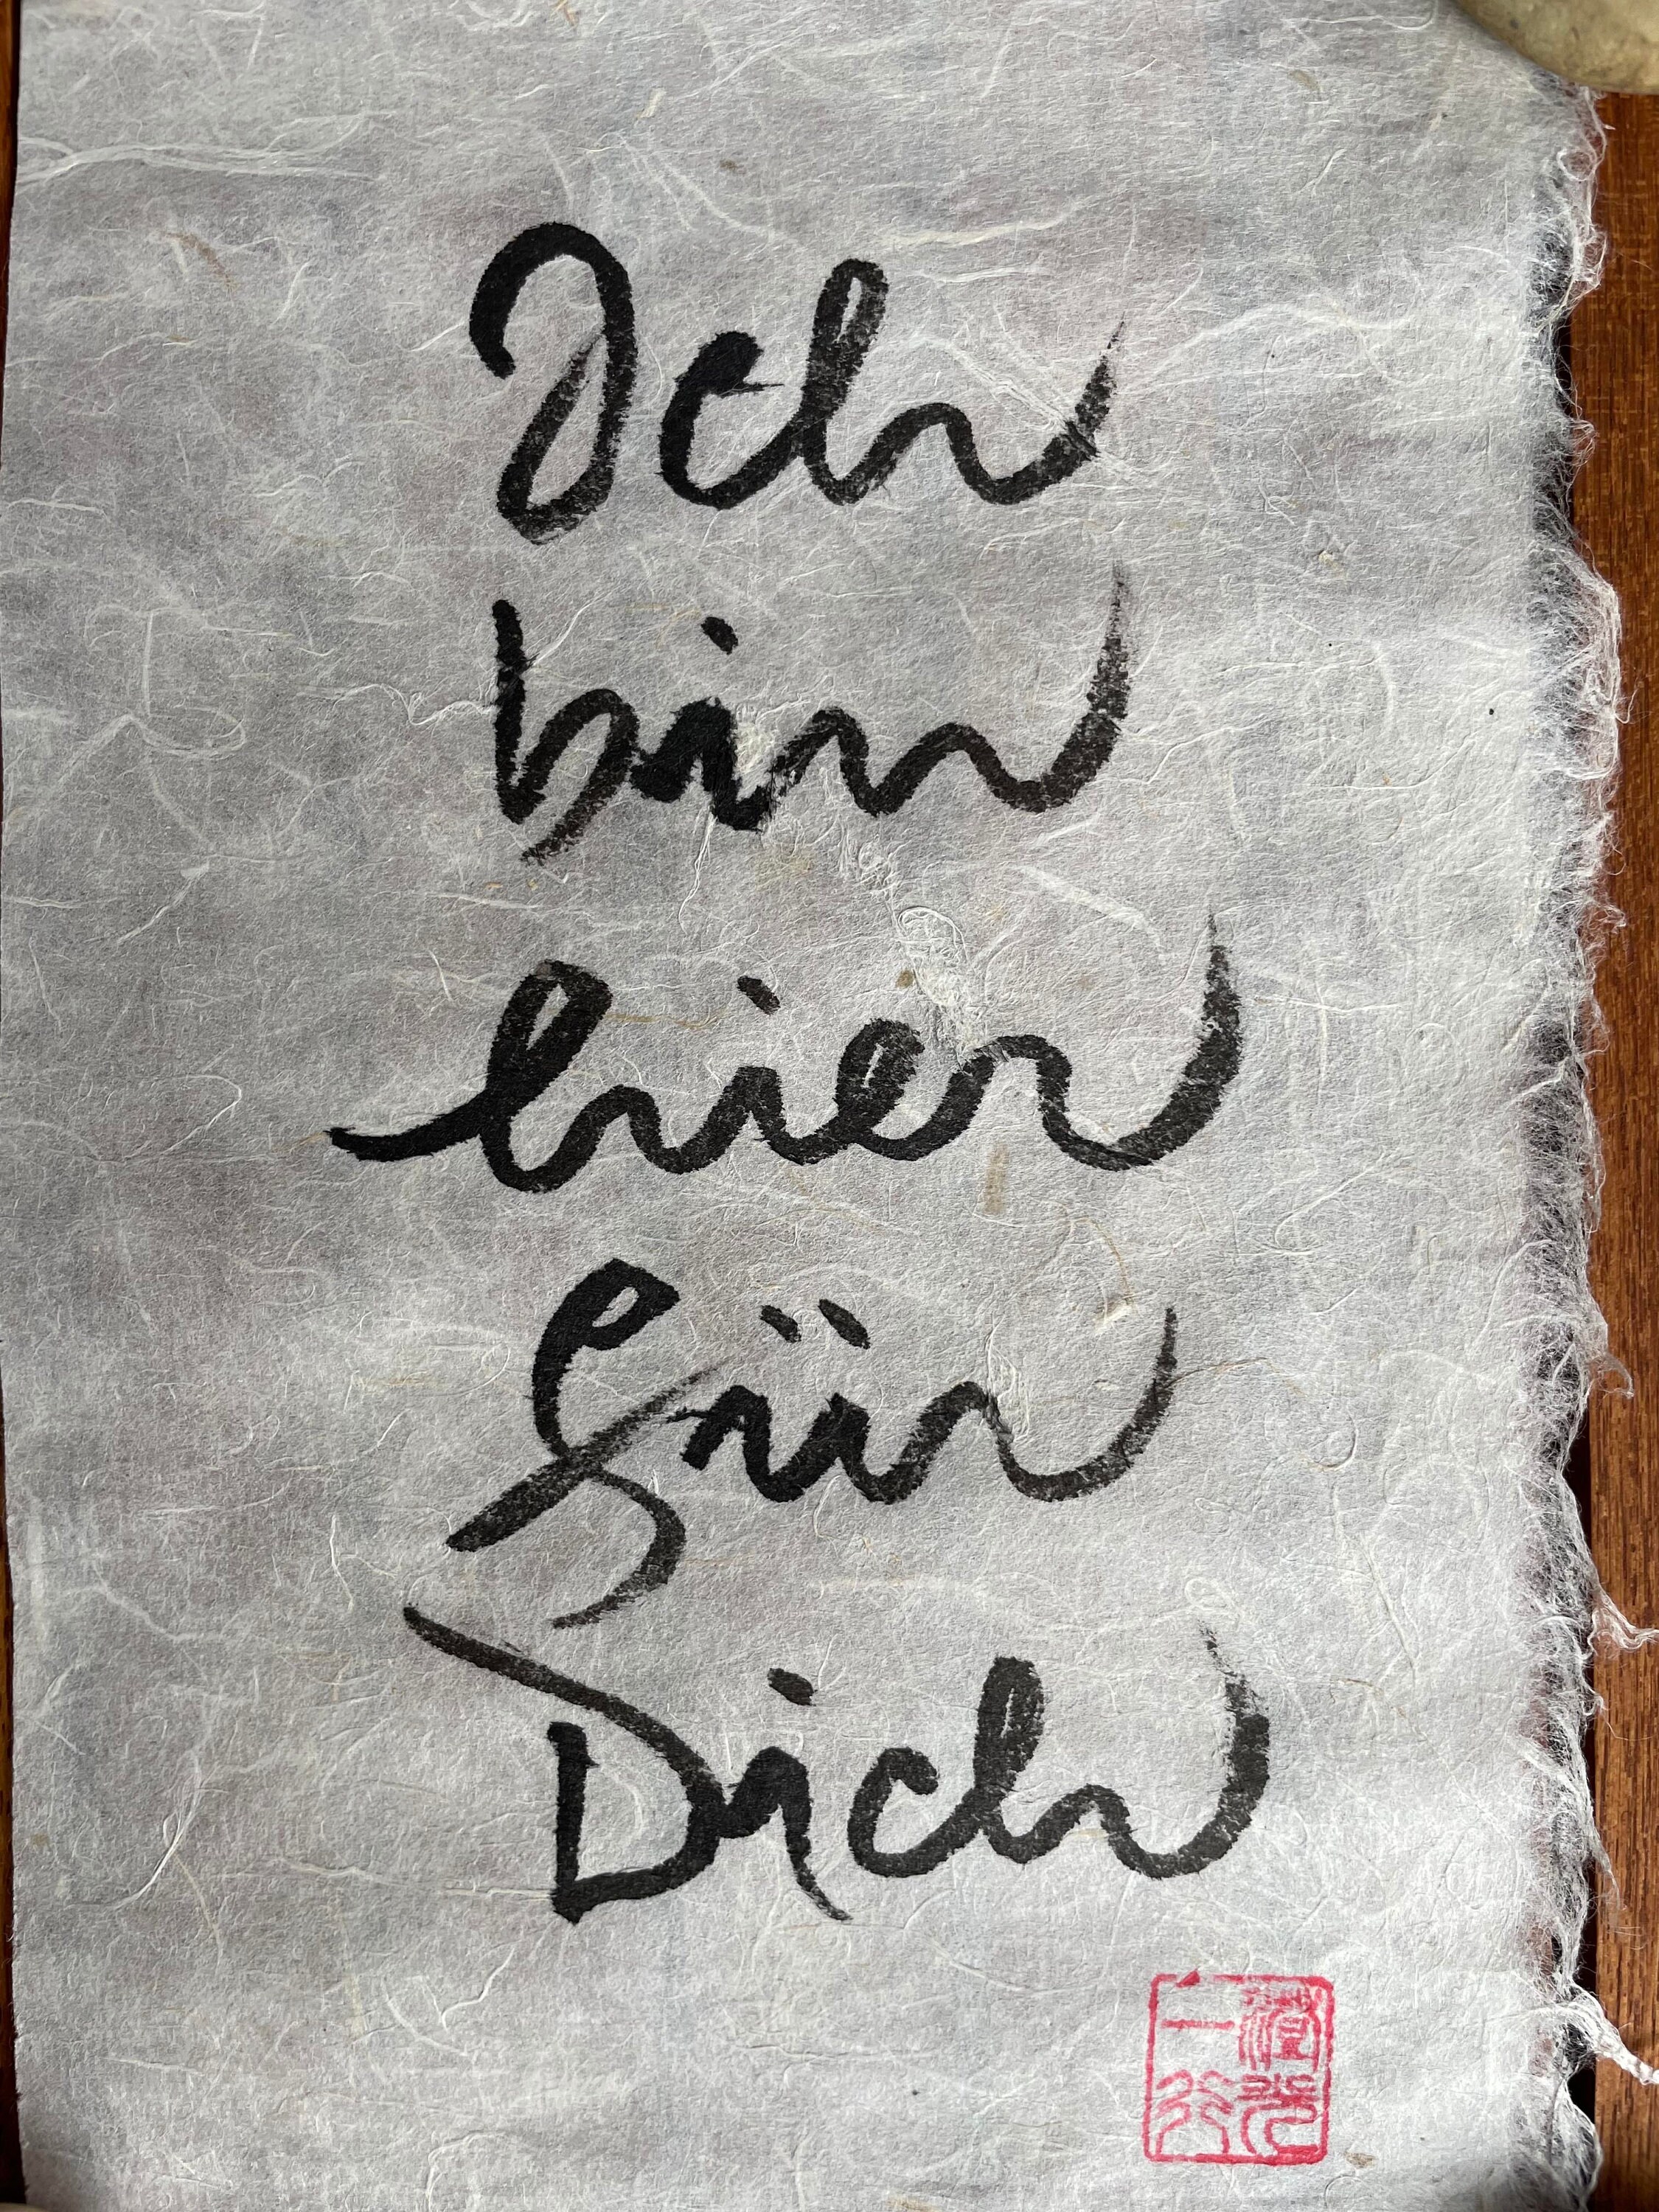 Ich
bin
hier
für
Dich